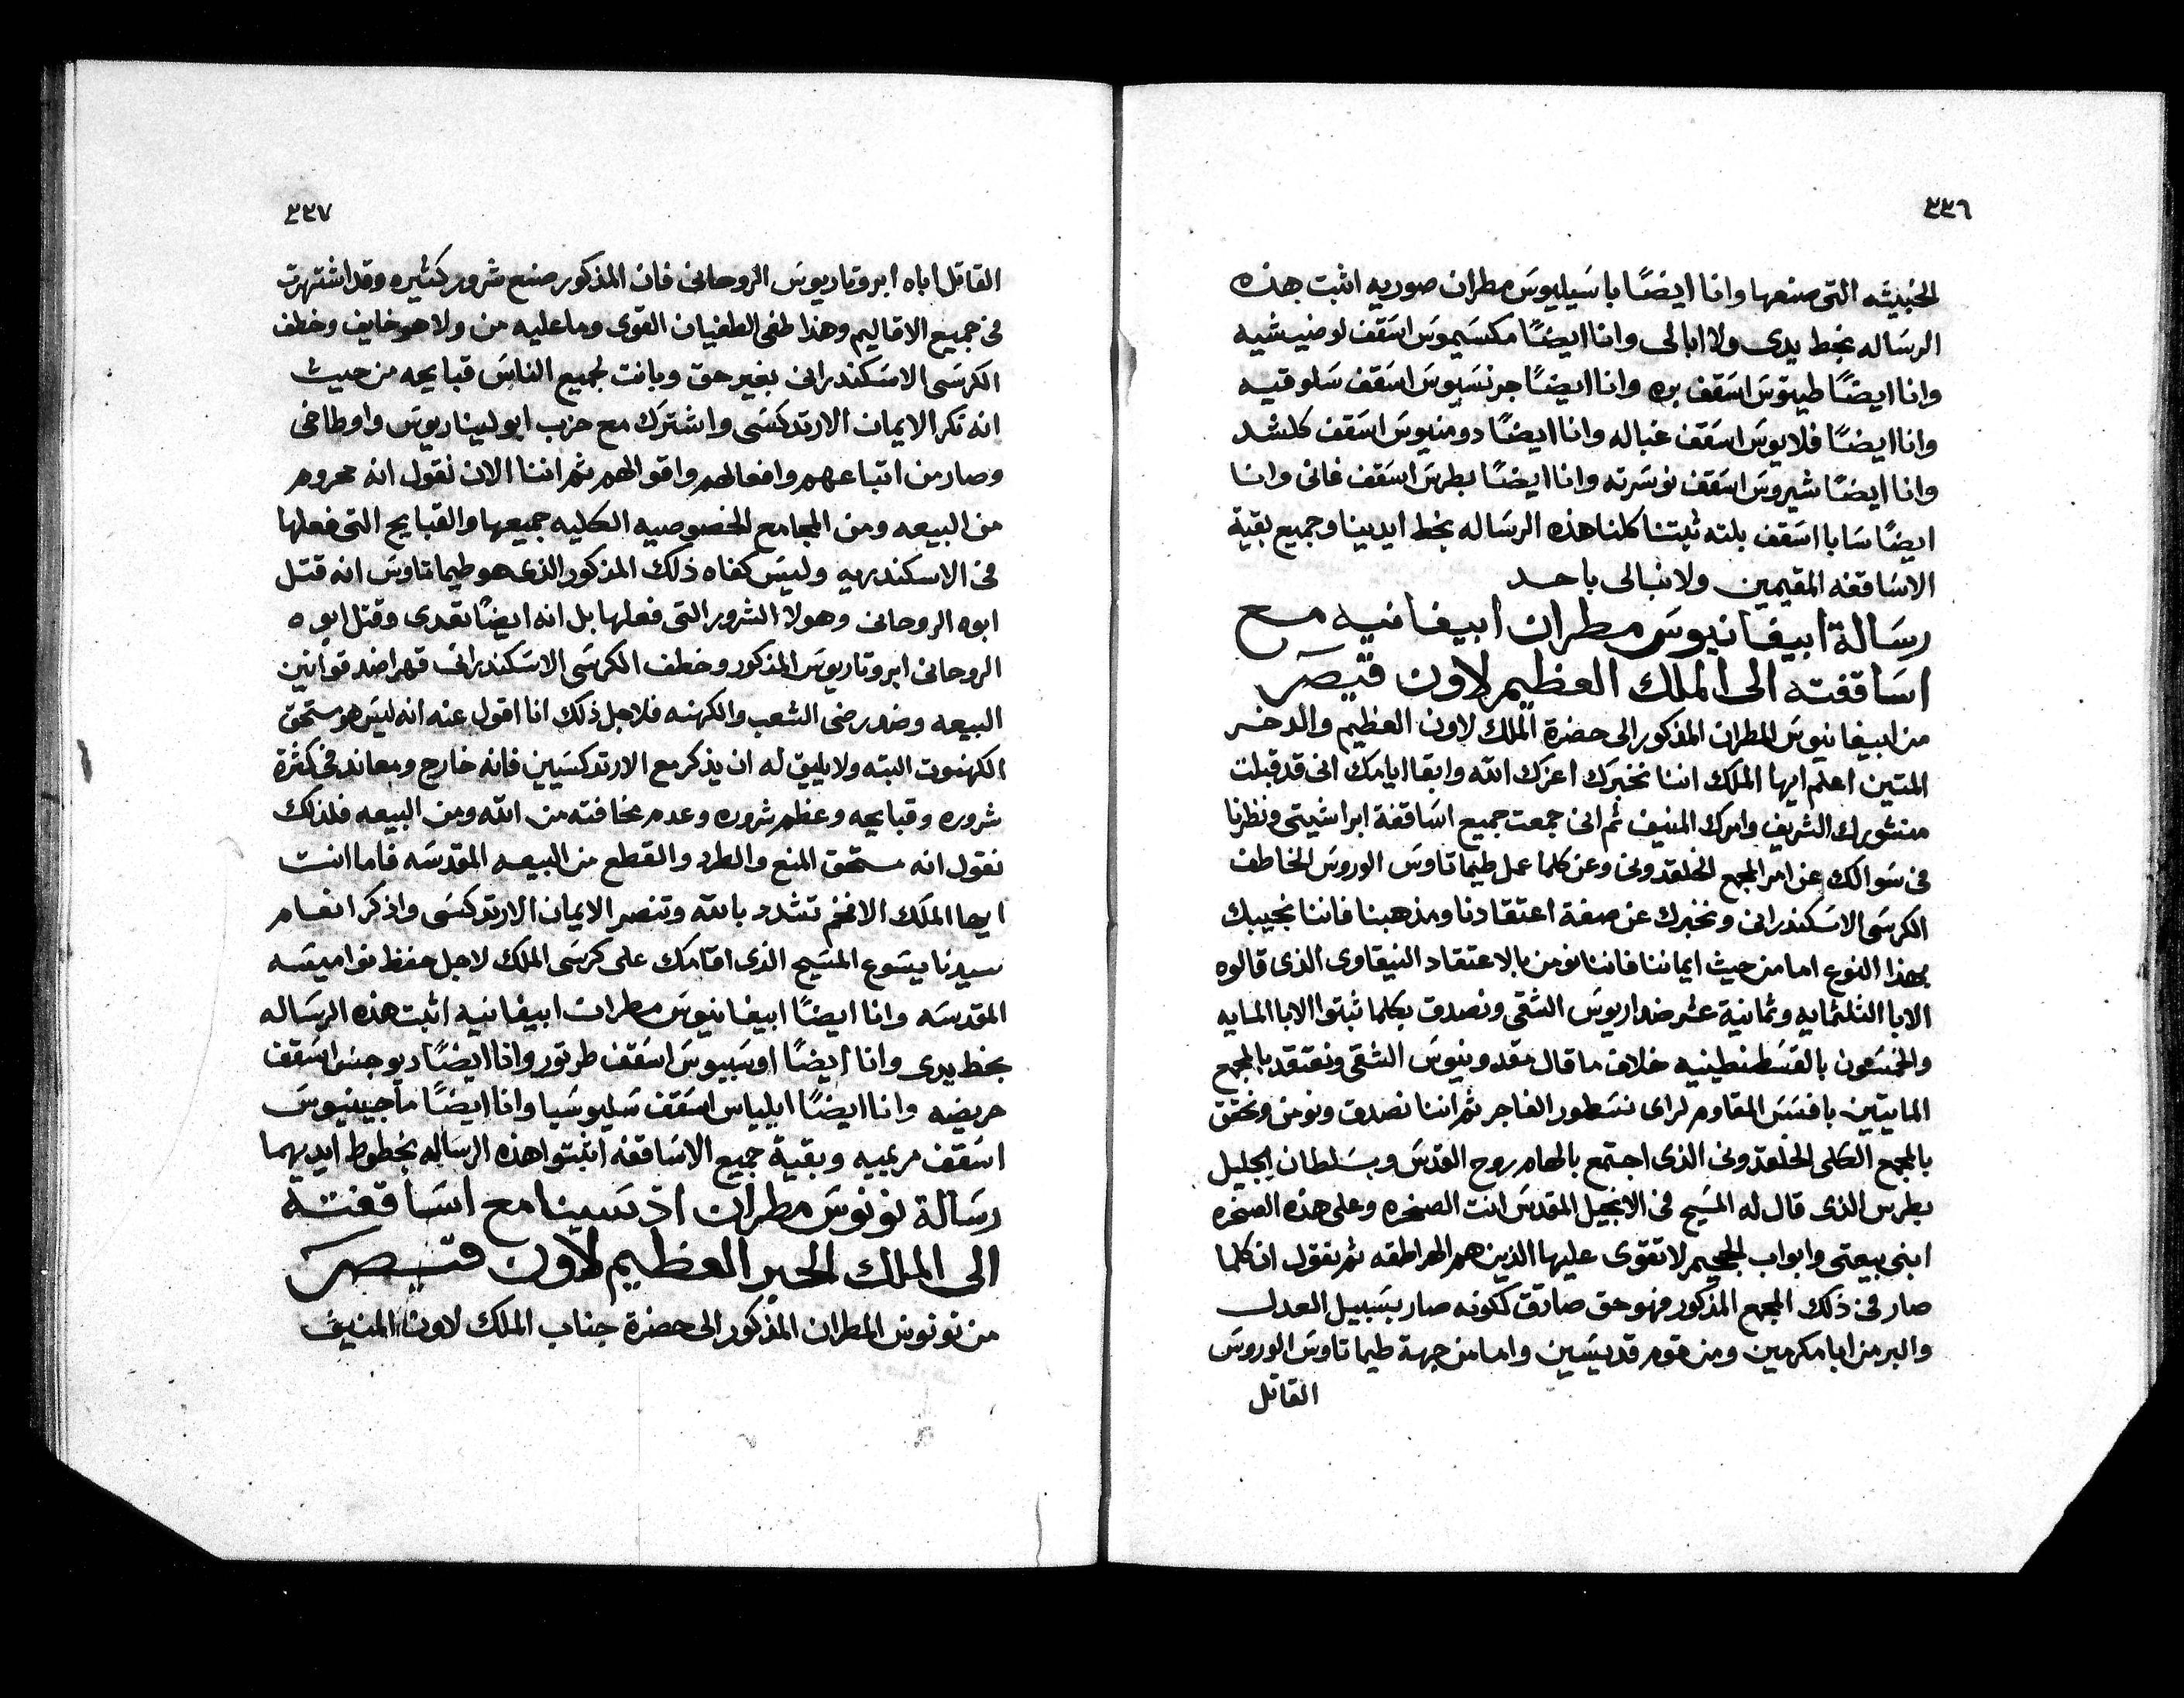 ٣٣٦
الخبيثه التى صنعها وانا ايضًا باسَيليوسَ مطران صوريه اثبت هذه
الرسَاله بخط يدى ولا ابالى وانا ايضًا مكسَيموسَ اسَقف لوضيسَيه
وانا ايضًا طيتوسَ اسَقف بره وانا ايضًا جرنسَيوسَ اسَقف سَلوقيه
وانا ايضًا فلايوسَ اسَقف غباله وانا ايضًا دومنيوسَ اسَقف كلشد
وانا ايضًا شيروسَ اسَقف نوسَرته وانا ايضًا بطرسَ اسَقف غانى وانا
ايضًا سَابا اسَقف بلته ثبتنا كلنا هذه الرسَاله بخط ايدينا وجميع بقية
الاسَاقفه المقيمين ولا نبالى باحد
رسَالة ابيفانيوسَ مطران ابيفانيه مع
اسَاقفته الى الملك العظيم لاون قيصر
من ابيفانيوسَ المطران المذكور الى حضرة الملك لاون العظيم والدخر
المتين اعلم ايها الملك اننا نخبرك اعزك الله وابقا ايامك انى قد قبلت
منشورك الشريف وامرك المنيف ثم انى جمعت جميع اسَاقفة ابراشيتى ونظرنا
فى سَوالك عن امر المجمع الخلقدونى وعن كلما عمل طيماتاوسَ الوروسَ الخاطف
الكرسَى الاسَكندرانى ونخبرك عن صفة اعتقادنا ومذهبنا فاننا نجيبك
بهذا النوع اما من حيث ايماننا فاننا نومن بالاعتقاد النيقاوى الذى قالوه
الابا الثلثمايه وثمانية عشر ضد اريوسَ الشقى ونصدق بكلما ثبتوا الابا المايه
والخمسَون بالقسَطنطينيه خلاف ما قال مقدونيوسَ الشقى ونعتقد بالمجمع
المايتين بافسَسَ المقاوم لراى نسَطور الفاجر ثم اننا نصدق ونومن ونحقق
بالمجمع الكلى الخلقدونى الذى اجتمع بالهام روح القدسَ وبسَلطان الجليل
بطرس الذى قال له المسَيح فى الانجيل المقدسَ انت الصخره وعلى هذه الصخره
ابنى بيعتى وابواب الجحيم لا تقوى عليها الذين هم الهراطقه ثم نقول ان كلما
صار فى ذلك المجمع المذكور فهو حق صادق لكونه صار بسَبيل العدل
والبر من ابا مكرمين ومن قوم قديسَين واما من جهة طيماتاوسَ الوروسَ
القاتل
٣٣٧
القاتل اباه ابروتاريوسَ الروحانى فان المذكور صنع شرور كثيره وقد اشتهرت
فى جميع الاقاليم وهذا طغى الطغيان القوى وما عليه من ولا هو خايف وخطف
الكرسَى الاسَكندرانى بغير حق وبانت لجميع الناسَ قبايحه من حيث
انه نكر الايمان الارتدكسَى واشترك مع حزب ابوليناريوسَ واوطاخى
وصار من اتباعهم وافعالهم واقوالهم ثم اننا الان نقول انه محروم
من البيعه ومن المجامع الخصوصيه الكليه جميعها والقبايح التى فعلها
فى الاسكندريه وليسَ كفاه ذلك المذكور الذى هو طيماتاوسَ انه قتل
ابوه الروحانى وهولا الشرور التى فعلها بل انه ايضًا تعدى وقتل ابوه
الروحانى ابروتاريوسَ المذكور وخطف الكرسَى الاسَكندرانى قهرا ضد قوانين
البيعه وضد رضى الشعب والكهنه فلاجل ذلك انا اقول عنه انه ليسَ هو مستحق
الكهنوت البته ولا يليق له ان يذكر مع الارتدكسَيين فانه خارج ومعاند فى كثرة
شروره وقبايحه وعظم شروره وعدم مخافته من الله ومن البيعه فلذلك
نقول انه مستحق المنع والطرد والقطع من البيعه المقدسَه فاما انت
ايها الملك الافخم تشدد بالله وتنصر الايمان الارتدكسَى واذكر انعام
سيدنا يسَوع المسَيح الذى اقامك على كرسَى الملك لاجل حفظ نواميسَه
المقدسَه وانا ايضًا ابيفانيوسَ مطران ابيفانيه اثبت هذه الرسَاله
بخط يدى وانا ايضًا اوسَبيوسَ اسَقف طرتور وانا ايضًا ديوجنسَ اسَقف
حريضه وانا ايضًا ايلياس اسَقف سَليوسَيا وانا ايضًا ماجينيوسَ
اسَقف مريميه وبقية جميع الاسَاقفه اثبتوا هذه الرسَاله بخطوط ايديهما
رسَالة نونوسَ مطران ادسَينا مع اسَاقفته
الى الملك الحبر العظيم لاون قيصر
من نونوسَ المطران المذكور الى حضرة جناب الملك لاون المنيف